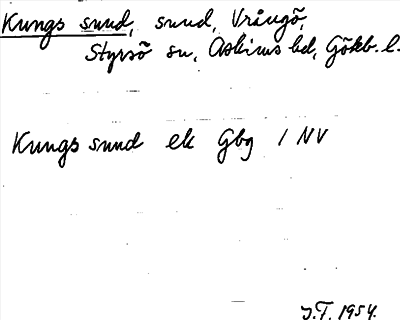 Kungs sund, sund, Vrångö,
Styrsö sn, Askims hd, Götëb. l.
Kungssund ek Gbg 1 NV
J.T. 1954.